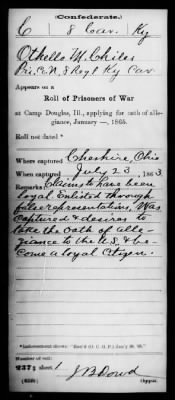 (Confederate.)
C 8 Cav. Ky
Othello M. Chiles
Pri. Co. A, 8 Regt Ky Cav.
Appears on a
Roll of Prisoners of War
at Camp Douglas, Ill., applying for oath of alle-
giance, January —, 1865.
Roll not dated *
Where captured Cheshire, Ohio
When captured July 23, 1863
Remarks Claims to have been
loyal. Enlisted through
false representations. Was
captured & desires to
take the Oath of alle-
giance to the U.S. & be-
come a loyal Citizen.
Number of roll:
237; sheet 1
J B Dowd
Copyist.